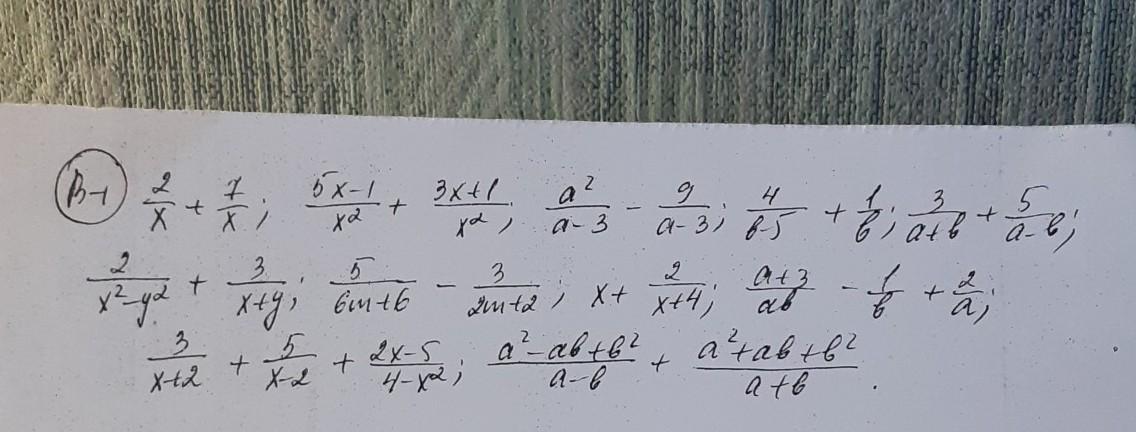 В-1 2/x + 7/x; (5x-1)/x² + (3x+1)/x²; a²/(a-3) - 9/(a-3); 4/(в-5) + 1/в; 3/(a+в) + 5/(a-в);
2/(x²-y²) + 3/(x+y); 5/(6m+6) - 3/(2m+2); x + 2/(x+4); (a+3)/(aв) - 1/в + 2/a;
3/(x+2) + 5/(x-2) + (2x-5)/(4-x²); (a²-aв+в²)/(a-в) + (a²+aв+в²)/(a+в).